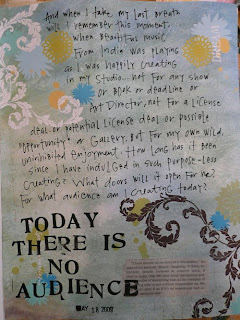 And when I take my last breath
will I remember this moment.
When beautiful music
From India was playing
as I was happily creating
in my studio.. not for any show
or book or deadline or
Art Director, not for a license
deal or potential license deal or possible
"opportunity" or gallery. But for my own wild,
uninhibited enjoyment. How long has it been
since I have indulged in such purpose-less
creating? What doors will it open for me?
For what audience am I creating today?
TODAY
THERE IS
NO
AUDIENCE
MAY 18 2009